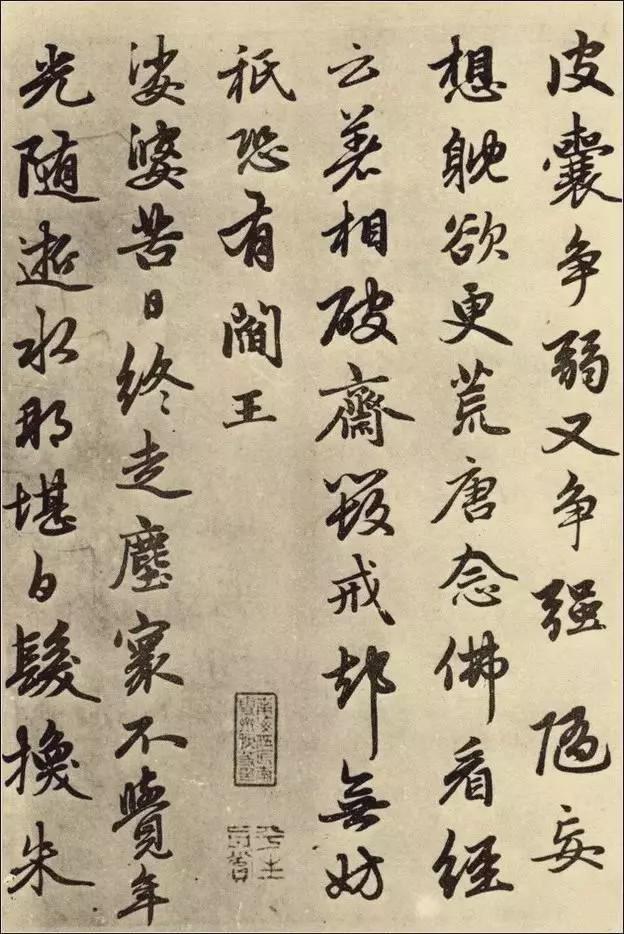 皮囊争弱又争强陷妄
想躭欲更荒唐念佛看經
云著相破齋毀戒却無妨
祇恐有閻王
娑婆苦日終走塵寰不覺年
光随逝水那堪白髮換朱